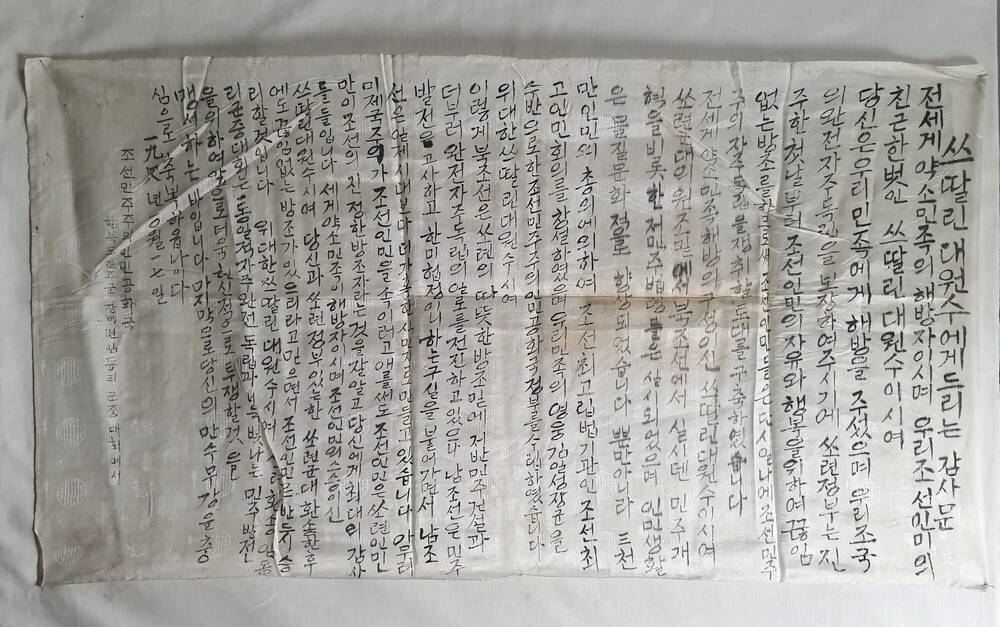 쓰딸린대원수에게드리는 감사문
전세계약소민족의해방자이시며 우리조선인민의
친근한벗인 쓰딸린대원수이시여
당신은우리민족에게해방을주섰으며 우리조국
의완전자주독립을보장하여주시기에 쏘련정부는진
주한첫날부터 조선인민의자유와행복을위하여끊임
없는방조를 조선인민들은 조선민주
주의자주독립을쟁취할토대를구축하였습니다
전세계약소민족해방의구성이신 쓰딸린대원수이시여
쏘련군대의원조으로 북조선에서 실시된 민주개
혁을비롯한제민주 들은실시되었으며 인민생활
은 물질문화 정도 향상되었습니다 뿐만아니라 三천
만인민의 총의에의하여 조선최고립법기관인조선최
고인민회의를창설하였으며우리민족의영웅김일성장군을
수반으로한조선민주주의인민공화국정부를수립하였습니다
위대한쓰딸린대원수시여
이렇게북조선은쏘련의 따뜻한방조밑에제반민주건설과
더부러완전자주독립의길로들전진하고있으나 남조선은민주
발전은고사하고 한미협정이니하는구실을불어가면서 남조
선은 만들고있습니다 아무리
미제국주의가조선인민을속이려고애를써도 조선인민은쏘련인민
만이조선의진정한방조자라는것을잘알고당신에게최대의감사
를들입니다 세게약소민족의해방자이시며조선인민의스승이신
쓰딸린대원수시여 당신과쏘련정부있는한 쏘련군대환송한후
에도끊임없는방조가있으리라고믿으면서 조선인민은반듯이승
리할것입니다 위대한쓰딸린대원수시여
리군중대회는통일적자주완전독립과 빛나는민주발전
을위하여앞으로더욱헌신적으로투쟁할것을
맹서하는바입니다 마지막으로당신의만수무강을충
심으로축복하옵나이다
一九四八년一0월一七일
조선민주주의인민공화국
군중대회에서